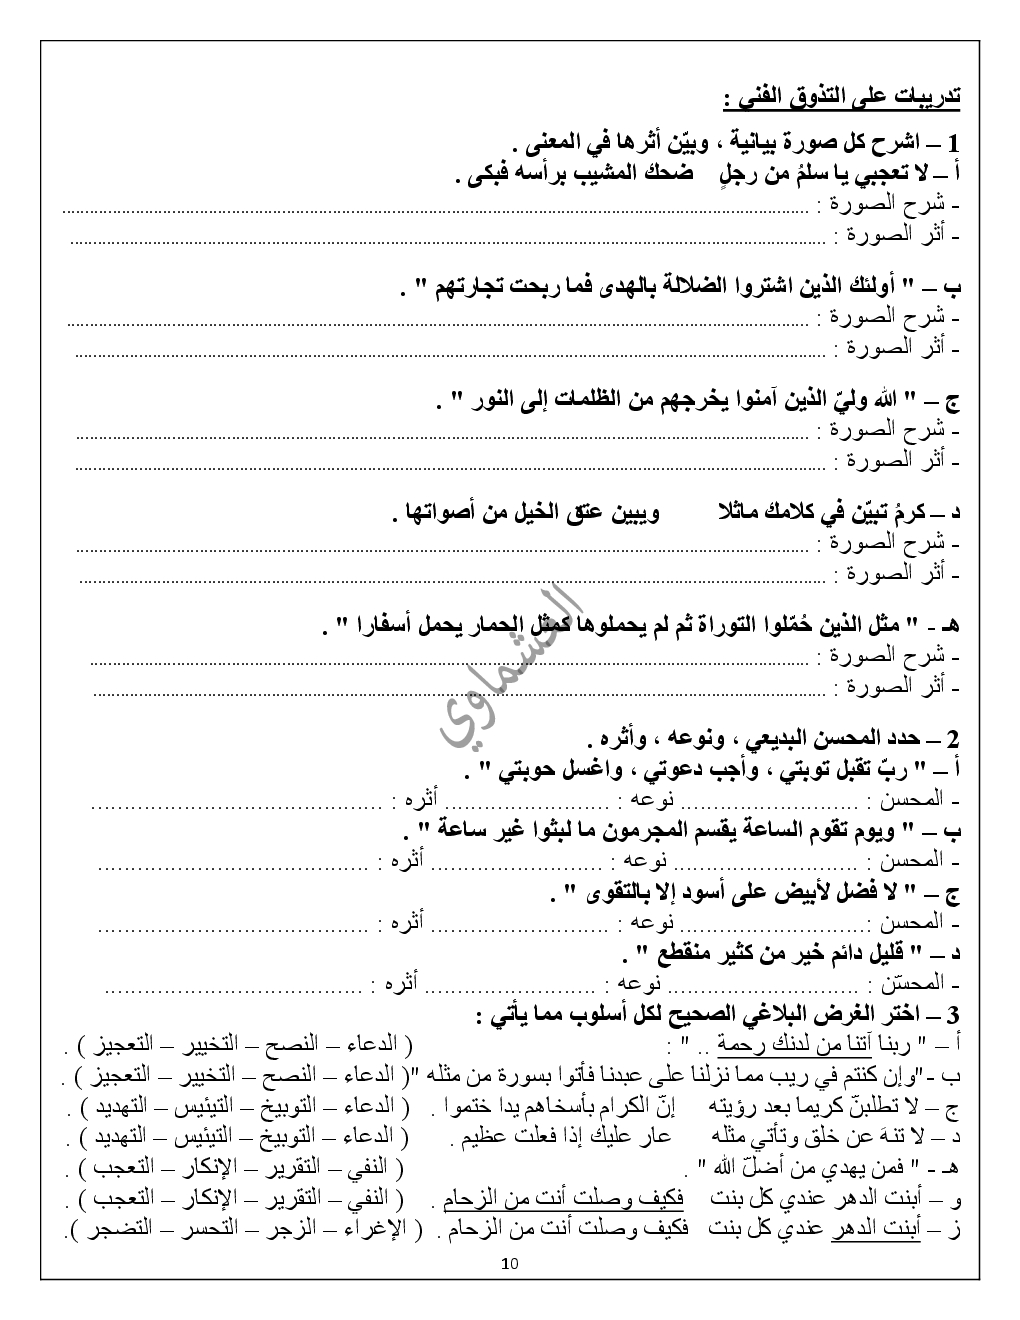 تدريبات على التذوق الفني :
1 – اشرح كل صورة بيانية ، وبيّن أثرها في المعنى .
أ – لا تعجبي يا سلمُ من رجلٍ ضحك المشيب برأسه فبكى .
- شرح الصورة : ........................................................................
- أثر الصورة : ........................................................................
ب – " أولئك الذين اشتروا الضلالة بالهدى فما ربحت تجارتهم " .
- شرح الصورة : ........................................................................
- أثر الصورة : ........................................................................
ج – " الله وليّ الذين آمنوا يخرجهم من الظلمات إلى النور " .
- شرح الصورة : ........................................................................
- أثر الصورة : ........................................................................
د – كرمُ تبيّن في كلامك ماثلا ويبين عتق الخيل من أصواتها .
- شرح الصورة : ........................................................................
- أثر الصورة : ........................................................................
هـ - " مثل الذين حُمّلوا التوراة ثم لم يحملوها كمثل الحمار يحمل أسفارا " .
- شرح الصورة : ........................................................................
- أثر الصورة : ........................................................................
العشماوي
2 – حدد المحسن البديعي ، ونوعه ، وأثره .
أ – " ربّ تقبل توبتي ، وأجب دعوتي ، واغسل حوبتي " .
- المحسن : ........................... نوعه : ......................... أثره : ........................................
ب – " ويوم تقوم الساعة يقسم المجرمون ما لبثوا غير ساعة " .
- المحسن : ........................... نوعه : ......................... أثره : ........................................
ج – " لا فضل لأبيض على أسود إلا بالتقوى " .
- المحسن :............................ نوعه : ......................... أثره : ........................................
د – " قليل دائم خير من كثير منقطع " .
- المحسّن : ........................... نوعه : ......................... أثره : ........................................
3 – اختر الغرض البلاغي الصحيح لكل أسلوب مما يأتي :
أ – " ربنا آتنا من لدنك رحمة .. " : ( الدعاء – النصح – التخيير – التعجيز ) .
ب -"وإن كنتم في ريب مما نزلنا على عبدنا فأتوا بسورة من مثله "( الدعاء – النصح – التخيير – التعجيز ) .
ج – لا تطلبنّ كريما بعد رؤيته إنّ الكرام بأسخاهم يدا ختموا . ( الدعاء – التوبيخ – التيئيس – التهديد ) .
د – لا تنهَ عن خلق وتأتي مثله عار عليك إذا فعلت عظيم . ( الدعاء – التوبيخ – التيئيس – التهديد ) .
هـ - " فمن يهدي من أضلّ الله " . ( النفي – التقرير – الإنكار – التعجب ) .
و – أبنت الدهر عندي كل بنت فكيف وصلت أنت من الزحام . ( النفي – التقرير – الإنكار – التعجب ) .
ز – أبنت الدهر عندي كل بنت فكيف وصلت أنت من الزحام . ( الإغراء – الزجر – التحسر – التضجر ).
10